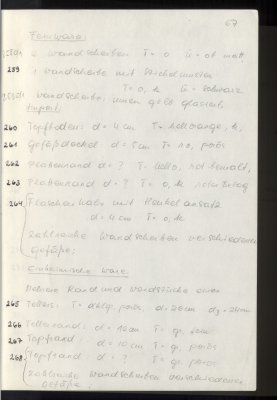 67
Feinware:
2 Wandscherben T=0 ü=ob matt
259 1 Wandscherbe mit
T=0, k ü=schwarz
Wandscherbe, innen gelb glasiert
Import,
260 Topfboden: d=4cm T=hellorange, k,
261 Gefäßdeckel d=5cm T= porös
262 Plattenrand d=? T=hello, not bemalt,
263 Plattenrand d=? T=0, k roter
264 Flaschenhals mit Henkelansatz
d=4cm T=0, k
Zahlreiche Wandscherben verschiedener
Gefäße;
Einheimische Ware:
Mehrere Rand und Wandstücke eines
265 Tellers: T= porös, d=26cm d2=24cm
266 Tellerrand: d=16cm T=gr.
267 Topfrand: d=10cm T=gr. porös
268 Topfrand: d=? T=gr. porös
Zahlreiche Wandscherben verschiedener
Gefäße,